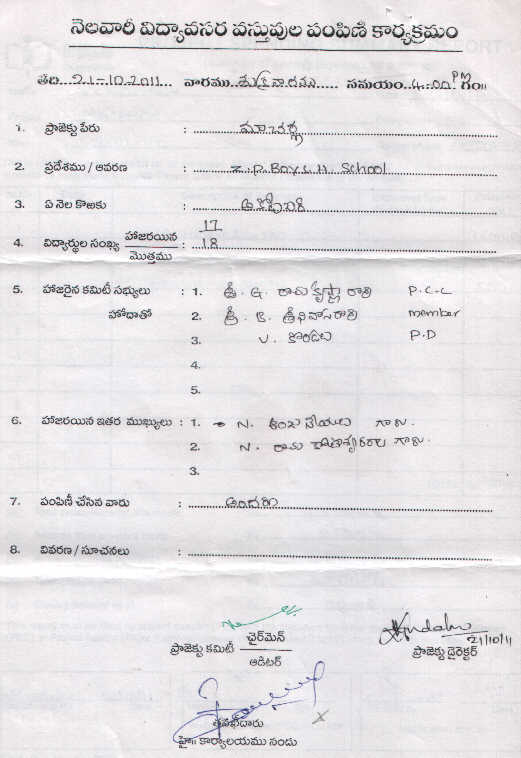 నెలవారీ విద్యావసర వస్తువుల పంపిణీ కార్యక్రమం
తేది. 21-10-2011 వారము శుక్రవారము సమయం. 4-00 PM గం॥
1. ప్రాజెక్టు పేరు : మాచర్ల
2. ప్రదేశము / ఆవరణ : Z.P. Boys H. School
3. ఏ నెల కొఱకు : అక్టోబరు
4. విద్యార్థుల సంఖ్య హాజరయిన / మొత్తము : 17 / 18
5. హాజరైన కమిటీ సభ్యులు : 1. శ్రీ. G. రామకృష్ణా రావు P.C.C
హోదాతో 2. శ్రీ. B. శ్రీనివాసరావు member
3. V. కొండలు P.D
4.
5.
6. హాజరయిన ఇతర ముఖ్యులు : 1. N. ఆంజనేయులు గారు.
2. N. రామ గారు.
3.
7. పంపిణీ చేసిన వారు : అందరూ
8. వివరణ / సూచనలు :
ప్రాజెక్టు కమిటీ చైర్‌మెన్ / ఆడిటర్
21/10/11
ప్రాజెక్టు డైరెక్టర్
తవభీదారు
హై॥ కార్యాలయము నందు